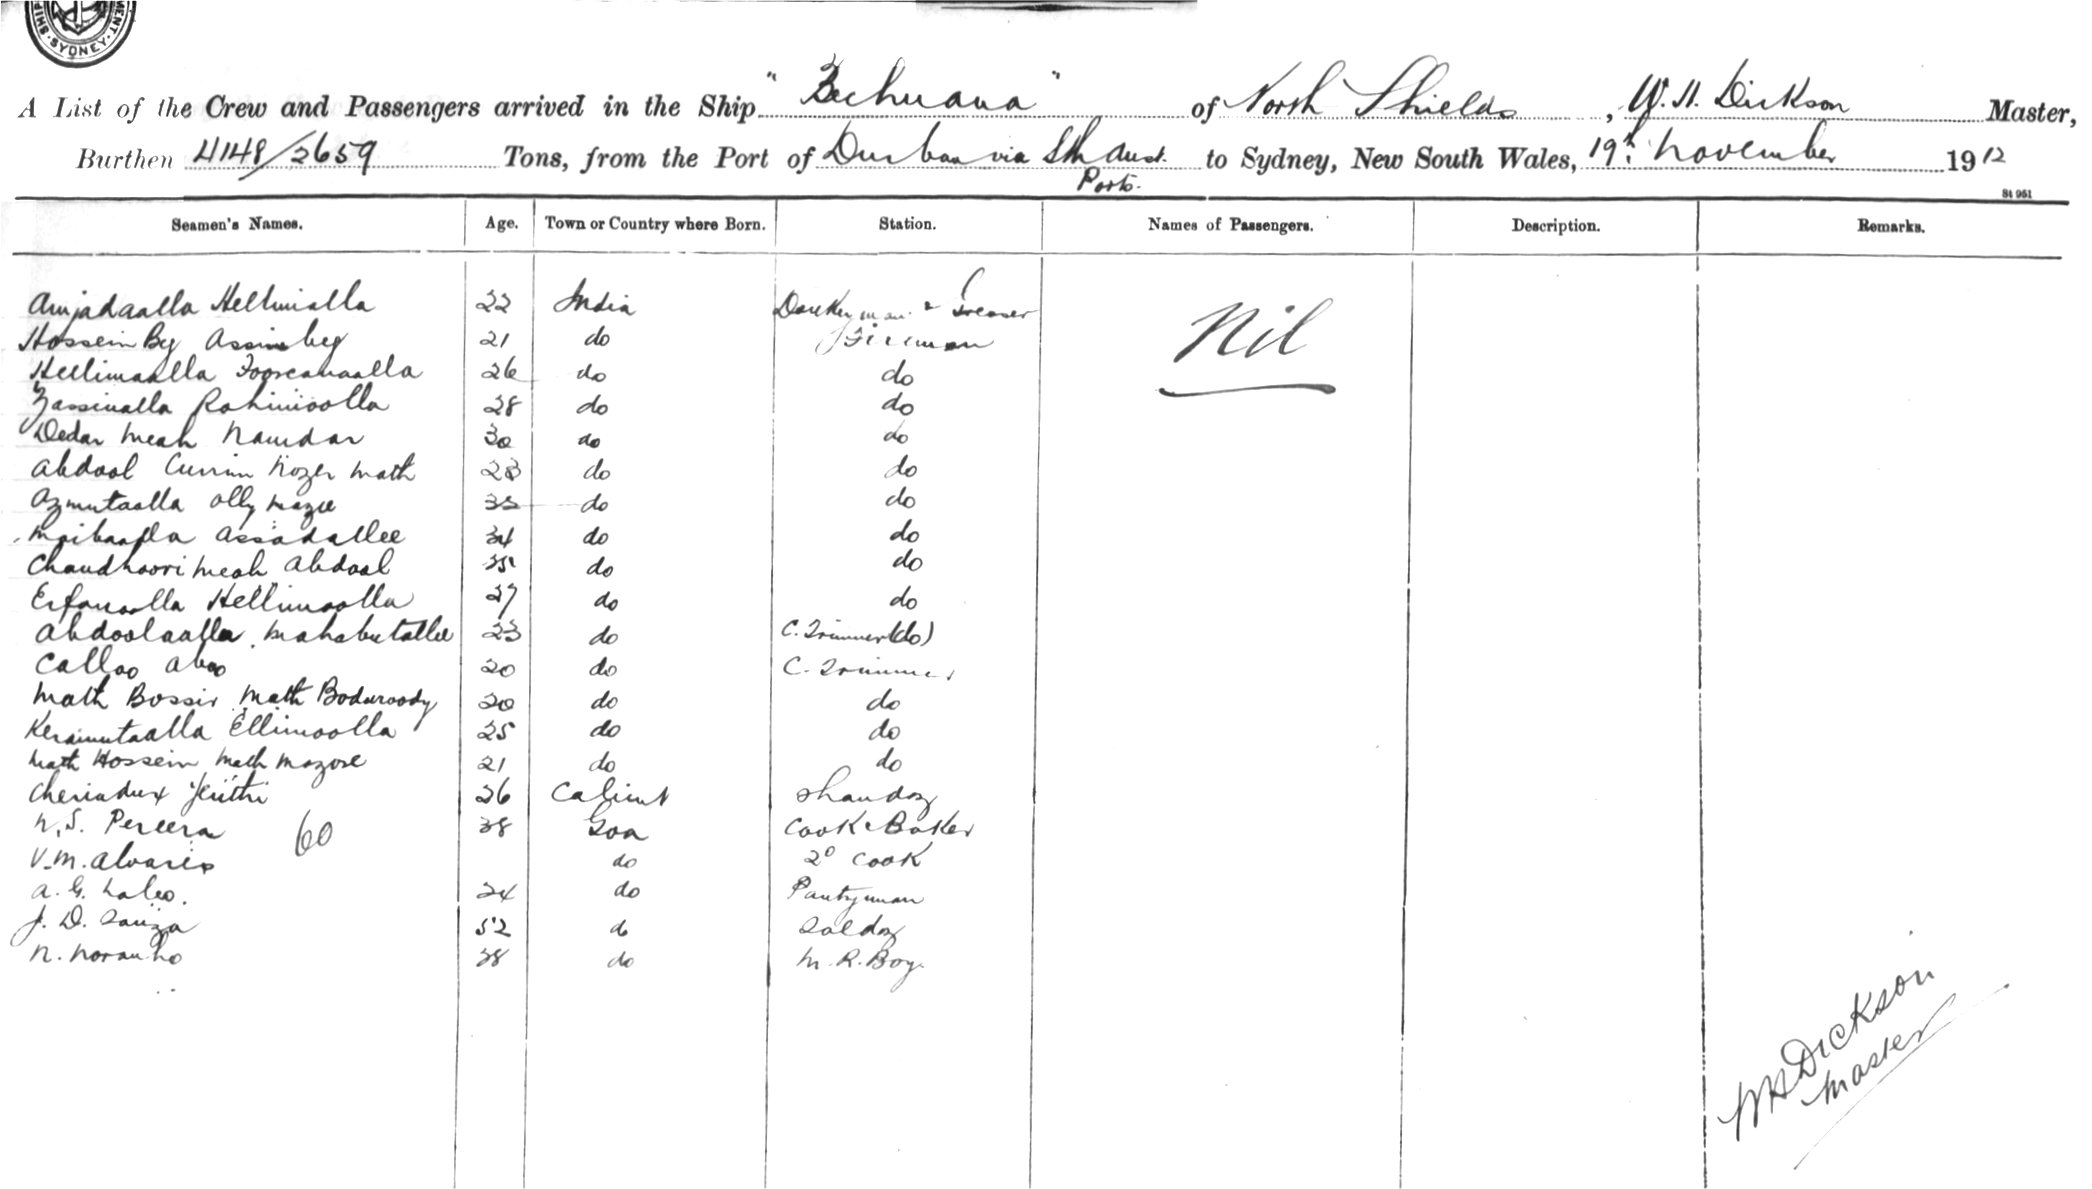 SHIP MENT. SYDNEY.
A List of the Crew and Passengers arrived in the Ship "Bechuana" of North Shields, W. H. Dickson Master,
Burthen 4148/2659 Tons, from the Port of Durban via Sth Aust. Ports. to Sydney, New South Wales, 19th November 1912
St 951
Seamen's Names. Age. Town or Country where Born. Station. Names of Passengers. Description. Remarks.
Amjadaalla Hellimalla 22 India Donkeyman & Greaser Nil
Hossein Beg Assimbeg 21 do Fireman
Hellimaalla 26 do do
Yassinalla Rohimoolla 28 do do
Dedar Meah Namdar 30 do do
Abdool Currim Nozer Math 28 do do
Azmutaalla Olly Mazie 33 do do
Assadallee 34 do do
Chaudhoori Meah Abdool 35 do do
Erfanoolla Hellimoolla 27 do do
Abdoolaalla Mahabutallee 23 do C. Trimmer (do)
Calloo Aboo 20 do C. Trimmer
Math Bossir Math Boduroody 20 do do
Keramutaalla Ellimoolla 25 do do
Math Hossein Math Mozore 21 do do
26 Calicut
N. S. Pereera 60 38 Goa Cook & Baker
V. M. Alvares do 2º Cook
A. G. Lobo. 24 do Pantryman
J. D. Souza 52 do
N. Noranho 38 do M. R. Boy.
WH Dickson
Master